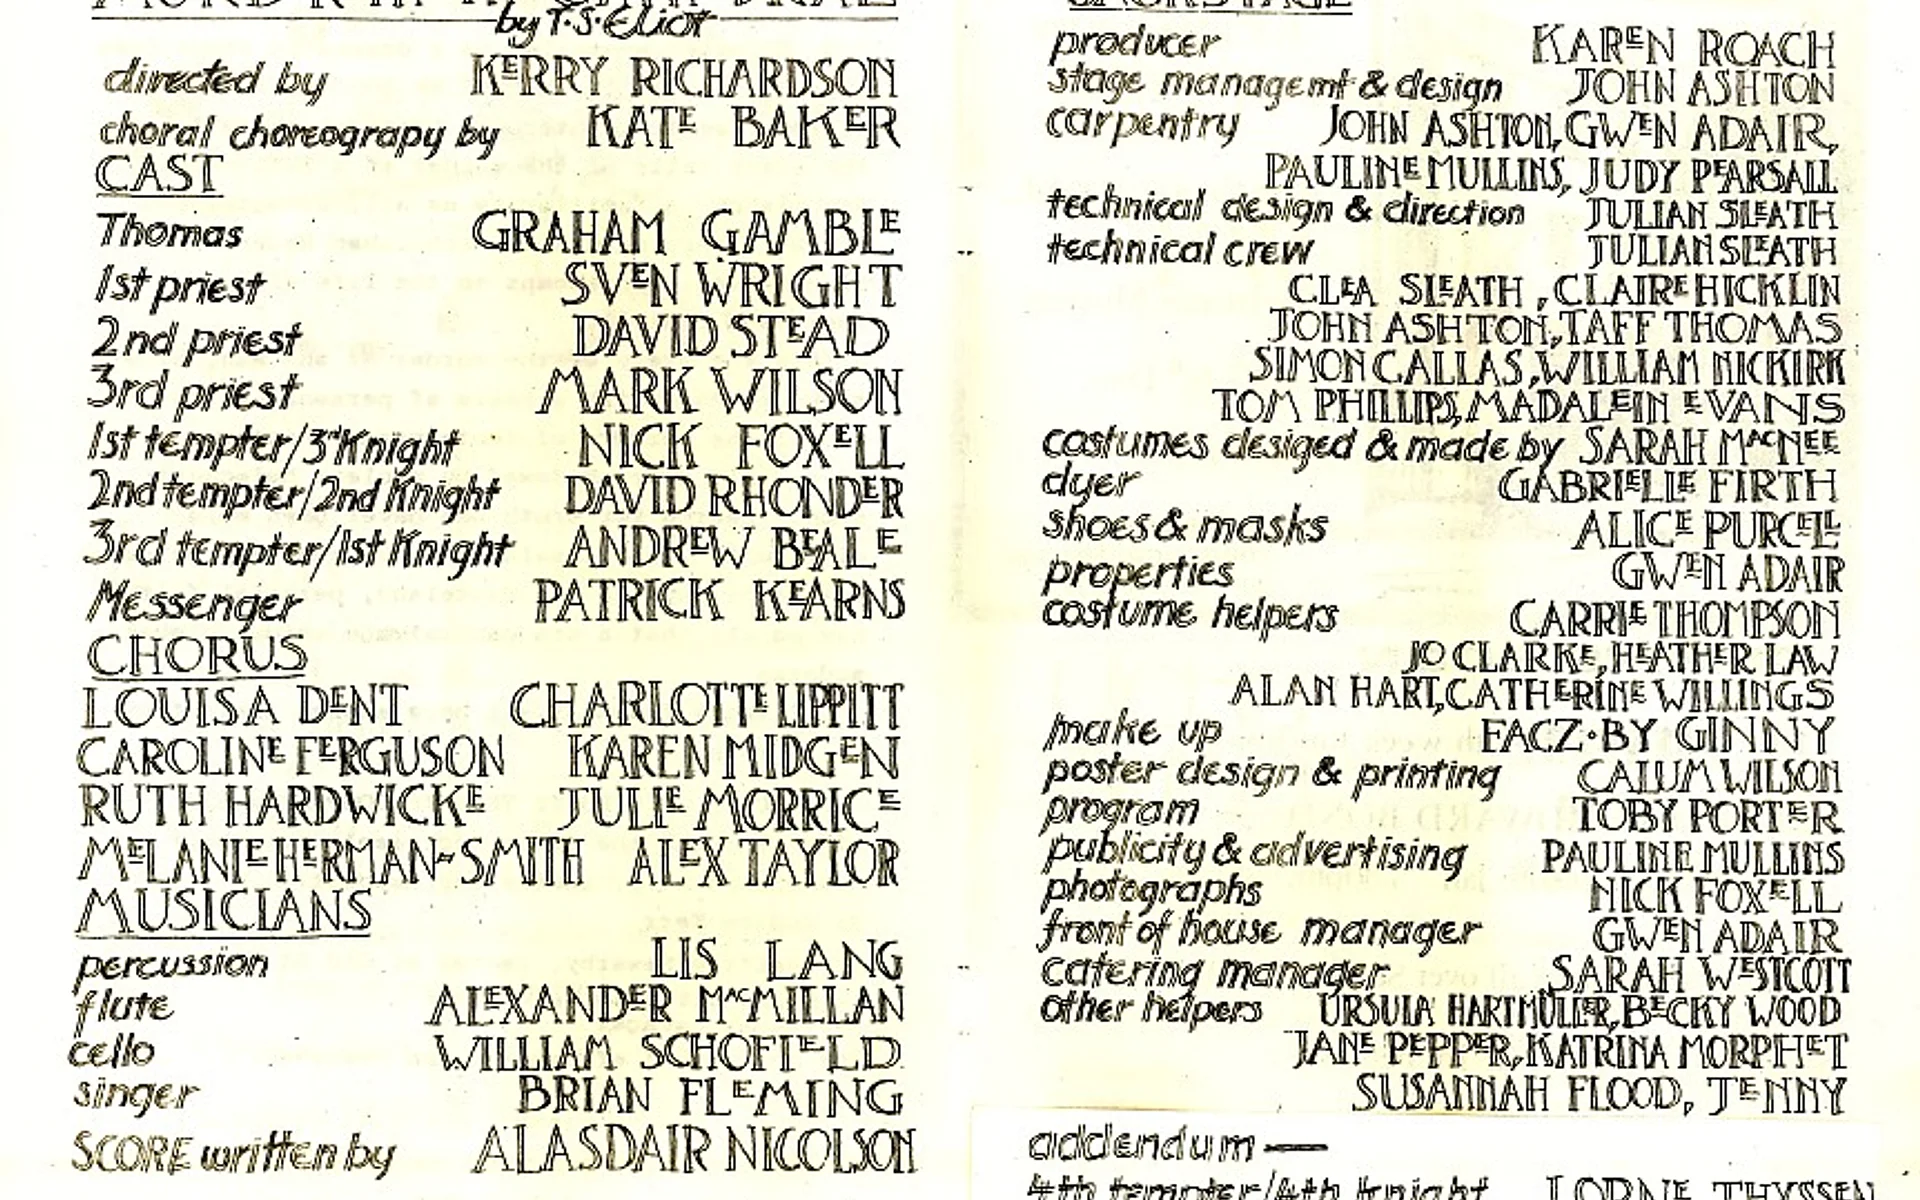 MURDER IN THE CATHEDRAL
by T.S. Eliot
directed by KERRY RICHARDSON
choral choreograpy by KATE BAKER
CAST
Thomas GRAHAM GAMBLE
1st priest SVEN WRIGHT
2nd priest DAVID STEAD
3rd priest MARK WILSON
1st tempter/3rd Knight NICK FOXELL
2nd tempter/2nd Knight DAVID RHONDER
3rd tempter/1st Knight ANDREW BEALE
Messenger PATRICK KEARNS
CHORUS
LOUISA DENT CHARLOTTE LIPPITT
CAROLINE FERGUSON KAREN MIDGEN
RUTH HARDWICKE JULIE MORRICE
MELANIE HERMAN-SMITH ALEX TAYLOR
MUSICIANS
percussion LIS LANG
flute ALEXANDER MACMILLAN
cello WILLIAM SCHOFIELD
singer BRIAN FLEMING
SCORE written by ALASDAIR NICOLSON
BACKSTAGE
producer KAREN ROACH
stage managemt & design JOHN ASHTON
carpentry JOHN ASHTON, GWEN ADAIR,
PAULINE MULLINS, JUDY PEARSALL
technical design & direction JULIAN SLEATH
technical crew JULIAN SLEATH
CLEA SLEATH, CLAIRE HICKLIN
JOHN ASHTON, TAFF THOMAS
SIMON CALLAS, WILLIAM NICKIRK
TOM PHILLIPS, MADALEIN EVANS
costumes desiged & made by SARAH MACNEE
dyer GABRIELLE FIRTH
shoes & masks ALICE PURCELL
properties GWEN ADAIR
costume helpers CARRIE THOMPSON
JO CLARKE, HEATHER LAW
ALAN HART, CATHERINE WILLINGS
make up FACZ·BY GINNY
poster design & printing CALUM WILSON
program TOBY PORTER
publicity & advertising PAULINE MULLINS
photographs NICK FOXELL
front of house manager GWEN ADAIR
catering manager SARAH WESTCOTT
other helpers URSULA HARTMÜLLER, BECKY WOOD
JANE PEPPER, KATRINA MORPHET
SUSANNAH FLOOD, JENNY
addendum —
4th tempter/4th knight LORNE THYSSEN